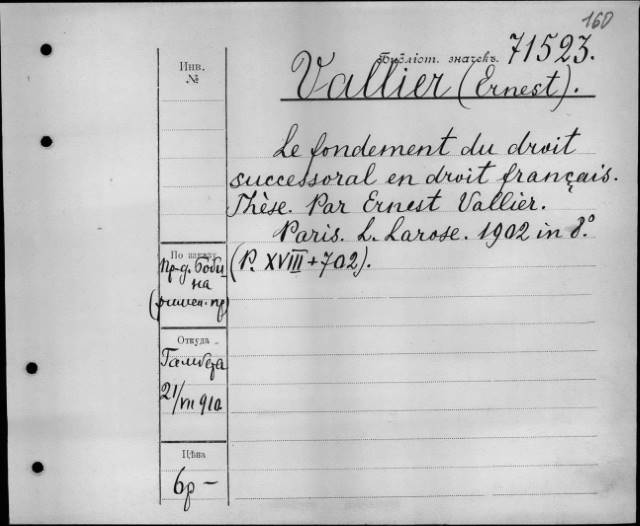 160
Библіот. значекъ. 71523.
Инв.
№
Vallier (Ernest).
Le fondement du droit
successoral en droit français.
Thèse. Par Ernest Vallier.
Paris. L. Larose. 1902 in 8.º
(P. XVIII + 702).
По заказу
Пр-д. Боби-
на
Откуда
21/VII 910
Цѣна
6р –